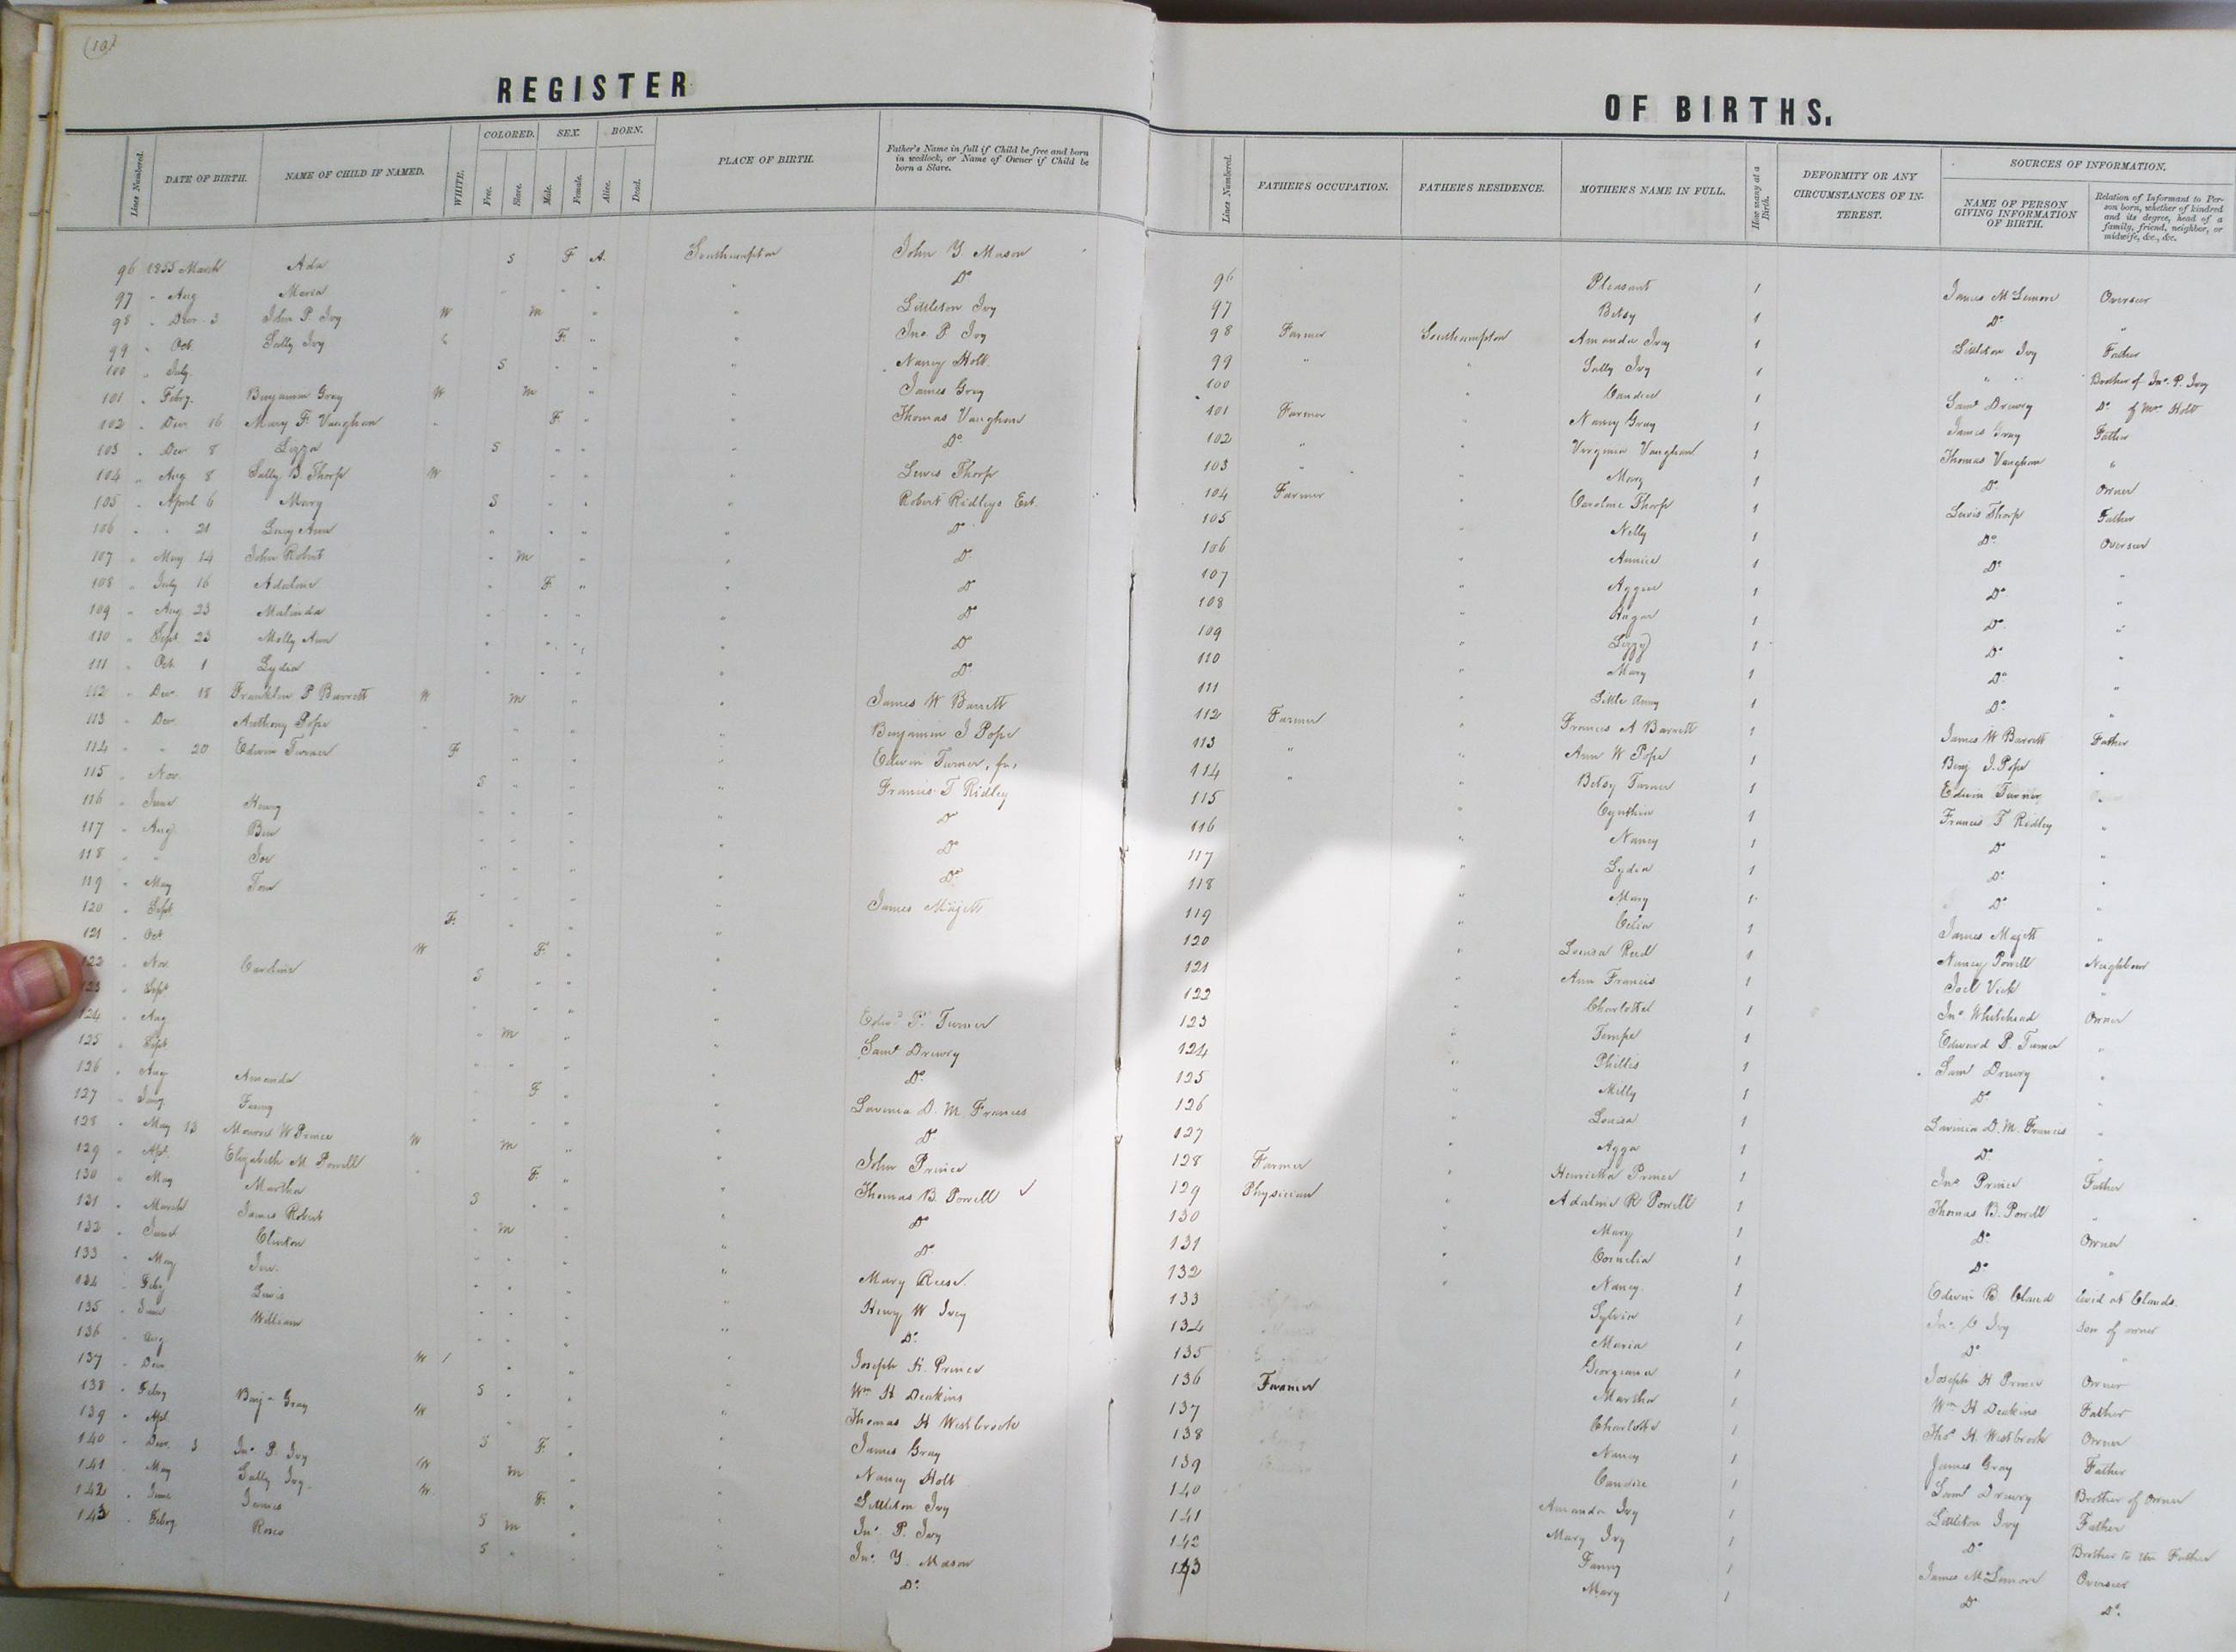 (10)
REGISTER
Lines Numbered. DATE OF BIRTH. NAME OF CHILD IF NAMED. WHITE. COLORED. Free. Slave. SEX. Male. Female. BORN. Alive. Dead. PLACE OF BIRTH. Father's Name in full if Child be free and born in wedlock, or Name of Owner if Child be born a Slave.
96 1855 March Ada S F A. Southampton John Y. Mason
97 " Aug Maria " " " " Do
98 " Decr 3 John P. Ivy W m " " Littleton Ivy
99 " Oct. Sally Ivy " F. " " Jno. P Ivy
100 " July S " " " Nancy Holt
101 " Feby. Benjamin Gray W m " " James Gray
102 " Decr 16 Mary F. Vaughan " F. " " Thomas Vaughan
103 " Decr 8 Lizza S " " " Do
104 " Aug 8 Sally B. Thorp W " " " Lewis Thorp
105 " April 6 Mary S " " " Robert Ridleys Est.
106 " " 21 Lucy Ann " " " " Do
107 " May 14 John Robert " m " " Do
108 " July 16 Adaline " F " " Do
109 " Aug 23 Malinda " " " " Do
110 " Sept 23 Molly Ann " " " " Do
111 " Oct. 1 Lydia " " " " Do
112 " Decr. 18 Franklin P Barrett W m " " James W Barrett
113 " Decr. Anthony Pope " " " " Benjamin J Pope
114 " " 20 Edwin Turner F " " " Edwin Turner, fn,
115 " Nov. S " " " Francis T Ridley
116 " June Henry " " " " Do
117 " Aug Ben " " " " Do
118 " " Joe " " " " Do
119 " May Tom " " " " James Magett
120 " Sept. F. " " "
121 " Oct W F. " "
122 " Nov. Caroline S " " "
123 " Sept " " " "
124 " Aug " m " " Edwd P. Turner
125 " Sept " " " " Saml Drewry
126 " Aug Amanda " F " " Do
127 " Jany Fanny " " " " Lavinia D. M. Francis
128 " May 13 W Prince W m " " Do
129 " Apl. Elizabeth M. Powell " F. " " John Prince
130 " May Martha S " " " Thomas B. Powell ✓
131 " March James Robert " m " " Do
132 " June Clinton " " " " Do
133 " May " " " " Mary Reese.
134 " Feby Lewis " " " " Henry W Ivey
135 " June William " " " " Do
136 " Aug W " " " Joseph H. Prince
137 " Decr S " " " Wm H Deakins
138 " Feby Benj Gray W " " " Thomas H Westbrook
139 " Apl. S F. " " James Gray
140 " Decr. 3 Jno P. Ivy W m " " Nancy Holt
141 " May Sally Ivy. W. F. " " Littleton Ivy
142 " June James S m " " Jno. P. Ivy
143 " Feby. Rose S " " " Jno. Y. Mason
Do
OF BIRTHS.
Lines Numbered. FATHER'S OCCUPATION. FATHER'S RESIDENCE. MOTHER'S NAME IN FULL. How many at a Birth. DEFORMITY OR ANY CIRCUMSTANCES OF INTEREST. SOURCES OF INFORMATION. NAME OF PERSON GIVING INFORMATION OF BIRTH. Relation of Informant to Person born, whether of kindred and its degree, head of a family, friend, neighbor, or midwife, &c., &c.
96 Pleasant 1 James McLemore Overseer
97 Betsy 1 Do "
98 Farmer Southampton Amanda Ivey 1 Littleton Ivy Father
99 " " Sally Ivy 1 " " Brother of Jno. P. Ivy
100 " Candice 1 Saml Drewry Do of Mrs Holt
101 Farmer " Nancy Gray 1 James Gray Father
102 " " Virginia Vaughan 1 Thomas Vaughan "
103 " " Mary 1 Do Owner
104 Farmer " Caroline Thorp 1 Lewis Thorp Father
105 " Nelly 1 Do Overseer
106 " Annice 1 Do "
107 " Aggie 1 Do "
108 " Hagar 1 Do "
109 " Lizzy 1 Do "
110 " Mary 1 Do "
111 " Little Amy 1 Do "
112 Farmer " Frances A Barrett 1 James W Barrett Father
113 " " Ann W Pope 1 Benj J. Pope "
114 " " Betsy Turner 1 Edwin Turner "
115 " Cynthia 1 Francis T Ridley "
116 " Nancy 1 Do "
117 " Lydia 1 Do "
118 " Mary 1 Do "
119 " Celia 1 James Magett "
120 " Louisa Reed 1 Nancy Powell Neighbour
121 " Ann Francis 1 Joel Vick "
122 " Charlotte 1 Jno Whitehead Owner
123 " Tempe 1 Edward P. Turner "
124 " Phillis 1 Saml Drewry "
125 " Milly 1 Do
126 " Louisa 1 Lavinia D. M. Francis "
127 " Agga 1 Do "
128 Farmer " Henrietta Prince 1 Jno Prince Father
129 Physician " Adaline R Powell 1 Thomas B. Powell "
130 " Mary 1 Do Owner
131 " Cornelia 1 Do "
132 " Nancy 1 Edwin B Claud lived at Clauds.
133 Sylvia 1 Jno. C Ivy Son of owner
134 Maria 1 Do "
135 Georgeana 1 Joseph H Prince Owner
136 Farmer Martha 1 Wm H Deakins Father
137 Charlotte 1 Thos H. Westbrook Owner
138 Nancy 1 James Gray Father
139 Candice 1 Saml Drewry Brother of Owner
140 Amanda Ivy 1 Littleton Ivy Father
141 Mary Ivy 1 Do Brother to the Father
142 Fanny 1 James McLemore Overseer
143 Mary 1 Do Do.